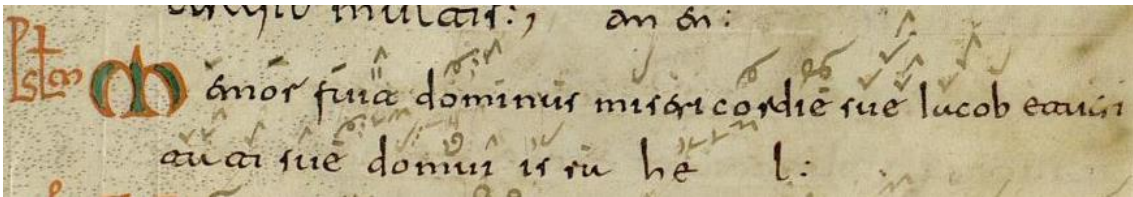 PSLM Memor fuit dominus misericordie sue Iacob et ueri
tati sue domui is ra he l: